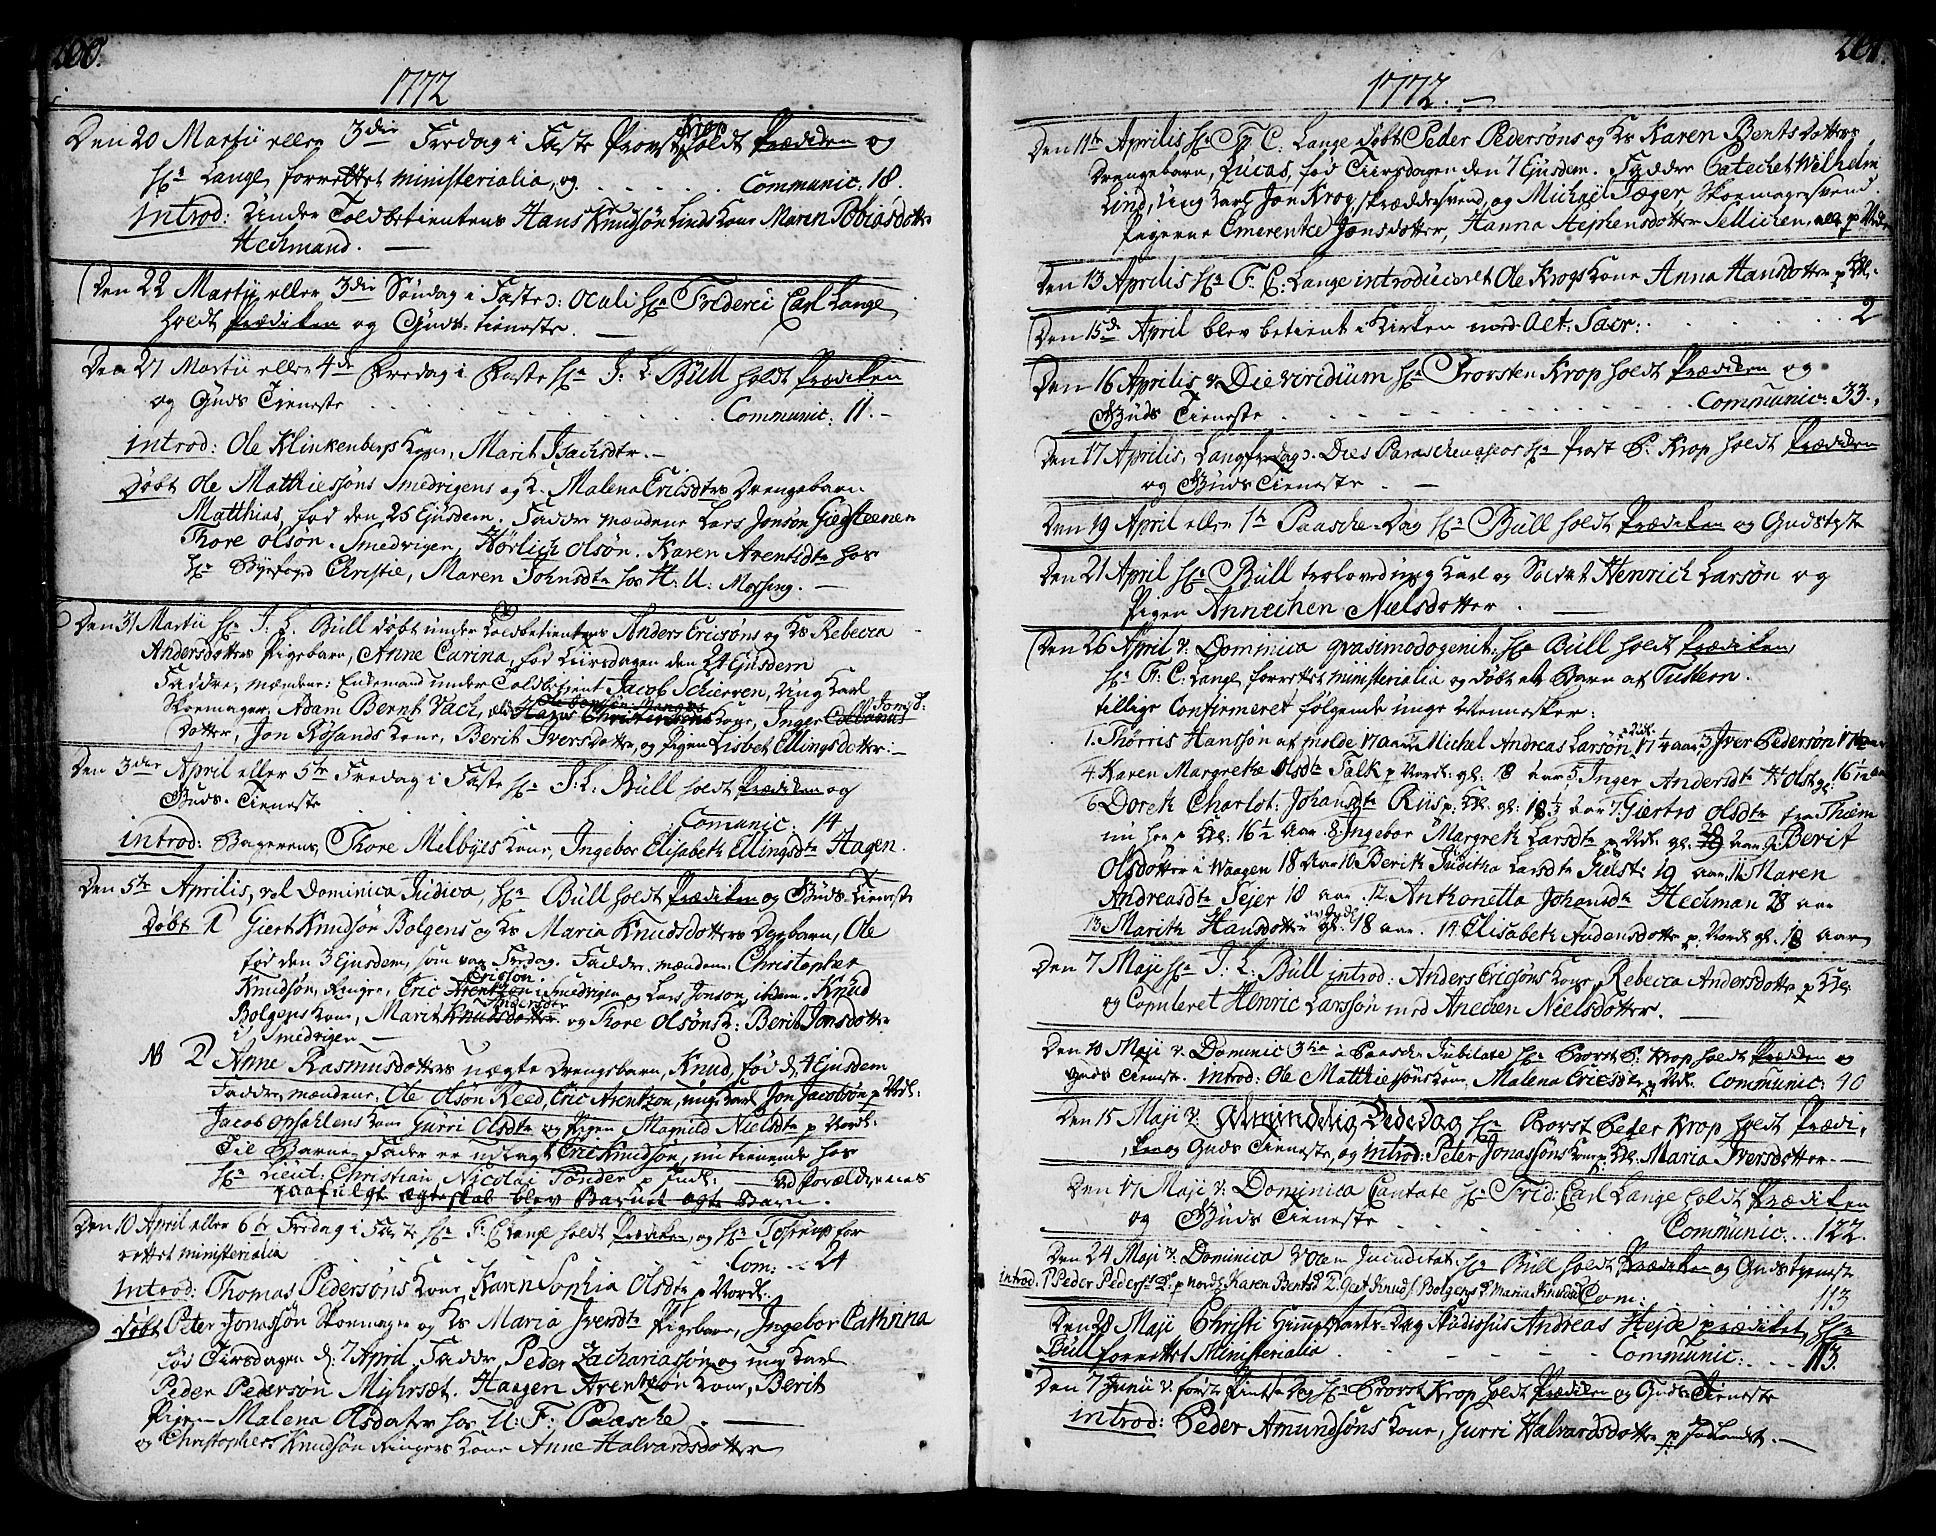 200.
1772
Den 20 Martii eller 3die Fredag i Faste Provst Krop holdt Prædiken og
Hr Lange forrettet ministerialia, og Communic: 18.
introd: Under Toldbetientens Hans Knudsøn Linds Kone Maren Tobiasdotter
Heckmand.
Den 22 Martii eller 3die Søndag i Faste ɔ: Oculi Hr Friderici Carl Lange
holdt Prædiken og Guds-tieneste.
Den 27 Martii eller 4de Fredag i Faste Hr J. L. Bull holdt Prædiken
og Guds Tieneste Communic: 11.
introd: Ole Klinkenbergs Kone, Marit Isachsdtr.
Døbt Ole Matthiesøns Smedvigens og K. Malena Ericsdtrs Drengebarn
Matthias, fød den 25 Ejusdem. Faddre mændene Lars Jonsøn Giedsteenen
Thore Olsøn Smedvigen, Hørlich Olsøn. Karen Arentsdtr hos
Hr Byefogd Christie, Maren Johnsdtr hos H: U: Mossing.
Den 31 Martii Hr J. L. Bull døbt under Toldbetientens Anders Ericsøns og Ks Rebecca
Andersdotters Pigebarn, Anne Carina, fød Tiirsdagen den 24 Ejusdem
Faddre, mændene: Enkemand under Toldbetient Jacob Schierven, Ung Karl
Skomager, Adam Bernt Vach, Hans Christensøns Kone, Inger Jonsd:
Dotter, Jon Røsands Kone, Berit Iversdotter, og Pigen Lisbet Ellingsdotter.
Den 3die April eller 5te Fredag i Faste Hr J: L: Bull holdt Prædiken og
Guds-Tieneste
Comunic. 14
introd: Bagerens, Thore Melbyes Kone, Ingebor Elisabeth Ellingsdtr Hagen.
Den 5te Aprilis, vel Dominica Judica, Hr Bull holdt Prædiken og Guds-Tieneste
Døbt 1 Giert Knudsøn Bolgens og Ks Maria Knudsdotters Dgbarn, Ole
fød den 3 Ejusdem, som var Fredag. Faddr. mændene Christopher
Knudsøn, Ringer, Eric Ericsøn i Smedvigen og Lars Jonsøn ibidem. Knud
Bolgens Kone, Marit Andersdtr og Thore Olsøns K: Berit Jonsdotter
i Smedvigen
NB 2 Anne Rasmusdotters uægte Drengebarn, Knud, fød d. 4 Ejusdem
Faddre, mændene: Ole Olsøn Reed, Eric Arentzøn, ung Karl Jon Jacobsøn p Nordl:
Jacob Opsahlens Kone Gurri Olsdtr og Pigen Magnild Nielsdtr p Nordl:
Til Barne-Fader er udlagt Eric Knudsøn, nu tienende hos
Hr Lieut: Christian Nicolai Tønder p Indl: ved Forældrenes
paafulgt ægteskab blev Barnet ægte Barn.
Den 10 April eller 6te Fredag i Faste Hr F: C: Lange holdt Prædiken, og Hr Tostrup for
rettet ministerialia Com: 24
introd: Thomas Pedersøns Kone, Karn Sophia Olsdtr p Nordl:
Døbt Peter Jonassøn Skomager og Ks Maria Iversdtr Pigebarn, Ingebor Cathrina
fød Tirsdagen d: 7 April. Faddr. Peder Zachariasøn og ung Karl
Peder Pedersøn Mijhrsæt. Haagen Arentzøn Kone, Berit
Pigen Malena Olsdatr hos U: F: Paasche.
og Christophers Knudsøn Ringers Kone Anne Halvardsdotter
201.
1772.
Den 11te Aprilis Hr F. C. Lange Døbt Peder Pedersøns og Ks Karen Bentsdotters
Drengebarn, Lucas, fød Tiirsdagen den 7 Ejusdem. Faddre Catechet Wilhelm
Lind, Ung Karl Jon Krog, skræddersvend, og Michael Jæger, Skomagersvend
Pigerne Emerentze Jonsdotter, Hanna Stephensdotter Sellichen, alle p Nordl
Den 13 Aprilis Hr F. C: Lange introduceret Ole Krogs Kone Anna Hansdotter p Kl:
Den 15de April blev betient i Kirken med Alt: Sacr: 2
Den 16 Aprilis v: Die viridium Hr Provsten Krop holdt Prædiken og
Guds Tieneste Communic. 33.
Den 17 Aprilis, Langfredag ɔ: Dies Parascheuaseos Hr Prost P. Krop holdt Prædiken
og Guds Tieneste.
Den 19 April eller 1te Paasche-Dag Hr Bull holdt Prædiken og Gudstste
Den 21 April Hr Bull troloved ung Karl og Soldat Henrich Larsøn og
Pigen Annechen Nielsdotter.
Den 26 April v. Dominica qvasimodogenit: Hr Bull holdt Prædiken
Hr F. C: Lange forrettet ministerialia og døbt et Barn af Tustern.
tillige Confirmeret følgende unge Mennesker:
1. Thørris Hanssøn af molde 17 aar 2 Michel Andreas Larsøn 17½ aar 3 Iver Pedersøn 17 aar
4 Karen Margrete Olsdtr Falk p Nordl: gl: 18 aar 5 Inger Andersdtr Holst gl: 16½ aar
6 Doreth Charlot: Johansdtr Riis p: Kl: gl: 18½ aar 7 Giertro Olsdtr fra Thiem
nu hos p Kl: 16½ aar 8 Ingebor Margreth Larsdtr p Nordl: gl. 20 aar 9 Berit
Olsdotter i Waagen 18 Aar 10 Berith Juditha Larsdtr Gielst: 19 aar, 11. Maren
Andreasdtr Sejer 18 aar. 12 Anthonetta Johansdtr Heckman 28 aar
13 Marith Hansdotter gl: 18 aar. 14 Elisabeth Audensdotter p. Nordl gl. 18 aar
Den 7 Maji Hr J. L. Bull introd: Anders Ericsøns Kone, Rebecca Andersdotter p Kl:
og Copuleret Henric Larssøn med Anechen Nielsdotter.
Den 10 Maji v: Dominic 3tia à Pasch: Jubilate Hr Provst P. Krop holdt Prædiken og
Guds Tieneste. introd: Ole Matthiessøns Kone, Malena Ericsdtr p Nordl. Communic: 40
Den 15 Maji v: Almindelig Bededag Hr Provst Peder Krop holdt Prædi,
ken og Guds Tieneste, og introd: Peter Jonassøns Kone p: Kl: Maria Iversdotter
Den 17 Maji v: Dominica Cantate Hr Frid: Carl Lange holdt Prædiken
og Guds Tieneste Communic... 122.
Den 24 Maji v. Dominica Voce Jucunditat: Hr Bull holdt Prædiken og Gudstjenest
introd: 1 Peder Peders: K. p Nordl: Karen Bentsd 2. Giert Knuds: Bolgens K Maria Knudsd Com: 113
Den 28 Maji Christi Himmelfarts-Dag Studiosus Andreas Hejde prædiket, Hr
Bull forrettet Ministerialia Communic: 113.
Den 7 Junii v. første Pintse Dag Hr Provst Krop holdt Prædiken og Guds-Tieneste
introd: Peder Amundsøns Kone, Gurri Halvardsdotter p Indlandet.